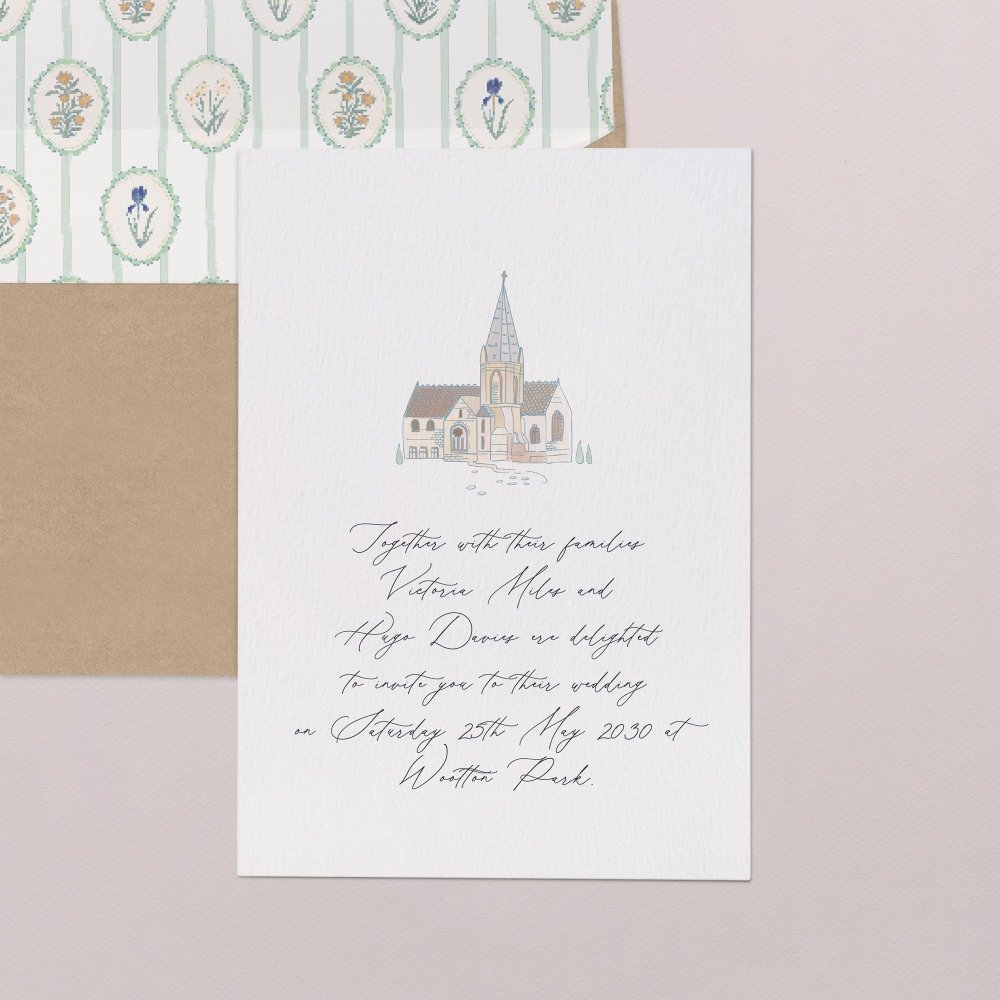 Together with their families
Victoria Miles and
Hugo Davies ere delighted
to invite you to their wedding
on Saturday 25th May 2030 at
Wootton Park.